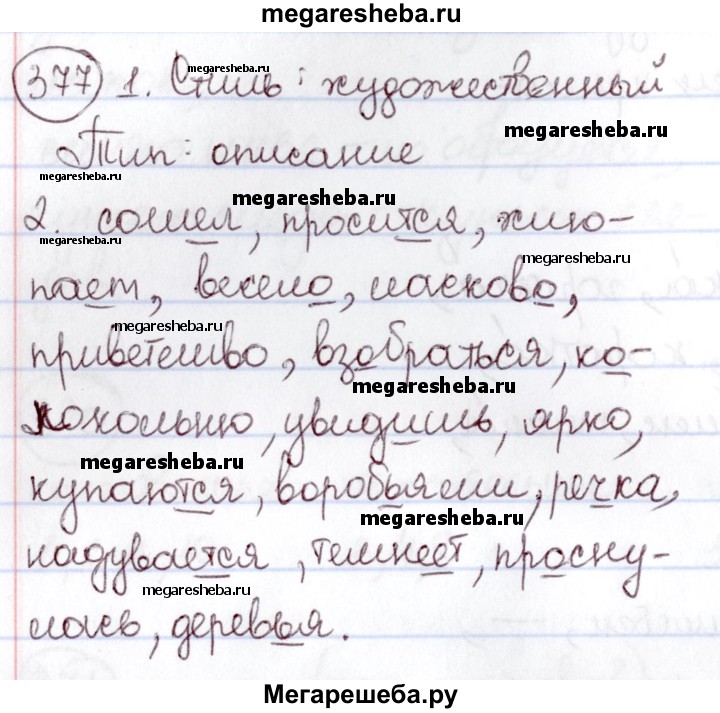 megaresheba.ru
377 1. Стиль: художественный
megaresheba.ru
megaresheba.ru
Тип: описание
megaresheba.ru
megaresheba.ru
2. сошел, просится, хлю-
megaresheba.ru
megaresheba.ru
пает, весело, ласково,
megaresheba.ru
приветливо, взобраться, ко-
megaresheba.ru
локольню, увидишь, ярко,
megaresheba.ru
купаются, воробьями, речка,
megaresheba.ru
надувается, темнеет, просну-
megaresheba.ru
лась, деревья.
Мегарешеба.ру